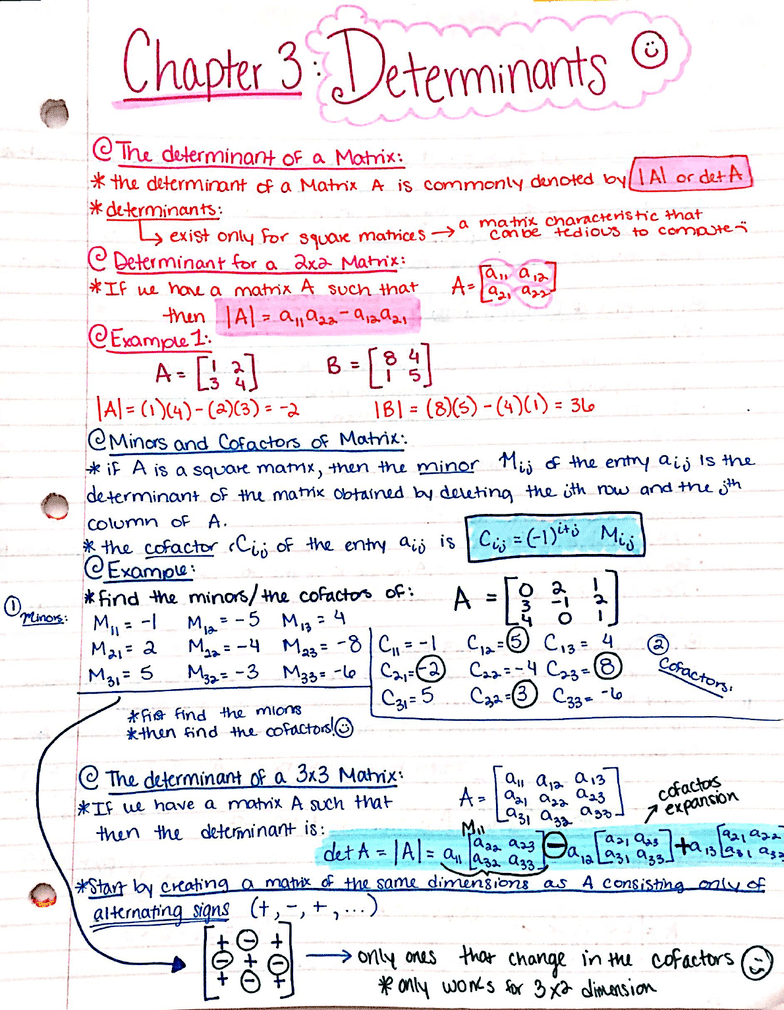 Chapter 3: Determinants
The determinant of a Matrix:
* the determinant of a Matrix A is commonly denoted by |A| or det A
* determinants:
↳ exist only for square matrices → a matrix characteristic that
can be tedious to compute
Determinant for a 2x2 Matrix:
* If we have a matrix A such that A = [a₁₁ a₁₂
a₂₁ a₂₂]
then |A| = a₁₁a₂₂ - a₁₂a₂₁
Example 1:
A = [1 2
3 4] B = [8 4
1 5]
|A| = (1)(4) - (2)(3) = -2 |B| = (8)(5) - (4)(1) = 36
Minors and Cofactors of Matrix:
* if A is a square matrix, then the minor Mij of the entry aij is the
determinant of the matrix obtained by deleting the ith row and the jth
column of A.
* the cofactor Cij of the entry aij is Cij = (-1)^i+j Mij
Example:
* find the minors/the cofactors of: A = [0 2 1
3 -1 2
4 0 1]
① Minors:
M₁₁ = -1 M₁₂ = -5 M₁₃ = 4
M₂₁ = 2 M₂₂ = -4 M₂₃ = -8
M₃₁ = 5 M₃₂ = -3 M₃₃ = -6
C₁₁ = -1 C₁₂ = 5 C₁₃ = 4
C₂₁ = -2 C₂₂ = -4 C₂₃ = 8
C₃₁ = 5 C₃₂ = 3 C₃₃ = -6
② Cofactors:
* first find the mions
* then find the cofactors!
The determinant of a 3x3 Matrix:
* If we have a matrix A such that A = [a₁₁ a₁₂ a₁₃
a₂₁ a₂₂ a₂₃
a₃₁ a₃₂ a₃₃]
cofactors
expansion
then the determinant is:
M₁₁
det A = |A| = a₁₁ [a₂₂ a₂₃
a₃₂ a₃₃] - a₁₂ [a₂₁ a₂₃
a₃₁ a₃₃] + a₁₃ [a₂₁ a₂₂
a₃₁ a₃₂
* Start by creating a matrix of the same dimensions as A consisting only of
alternating signs (+, -, +, ...)
[+ - +
- + -
+ - +] → only ones that change in the cofactors
* only works for 3x2 dimension